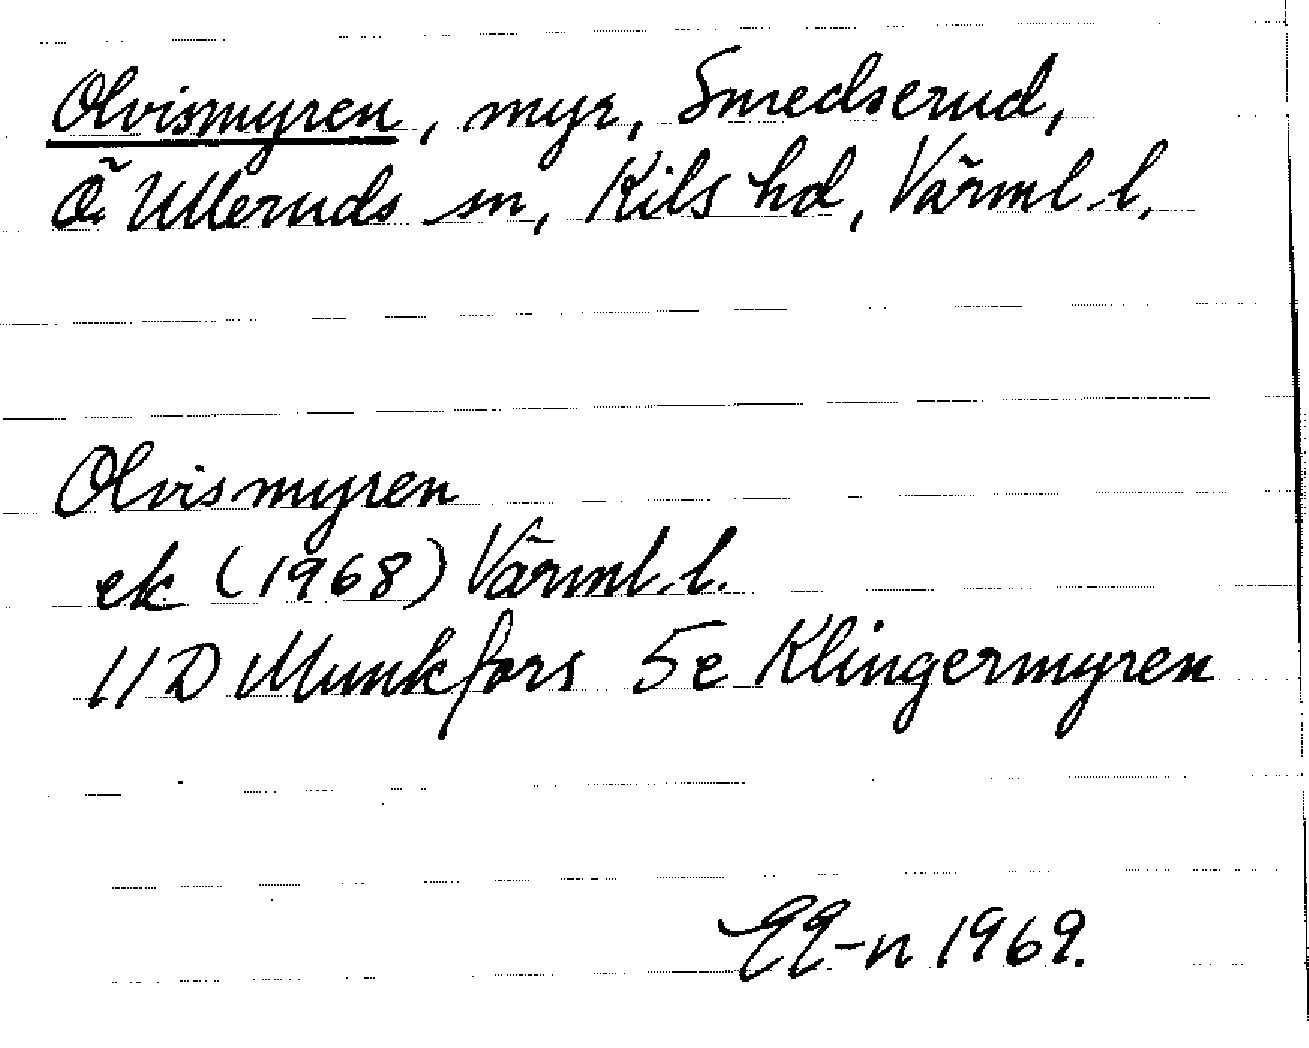 Olvismyren, myr, Smedserud,
Ö. Ulleruds sn, Kils hd, Värml. l.
Olvismyren
ek (1968) Värml. l.
11D Munkfors 5e Klingermyren
EE-n 1969.